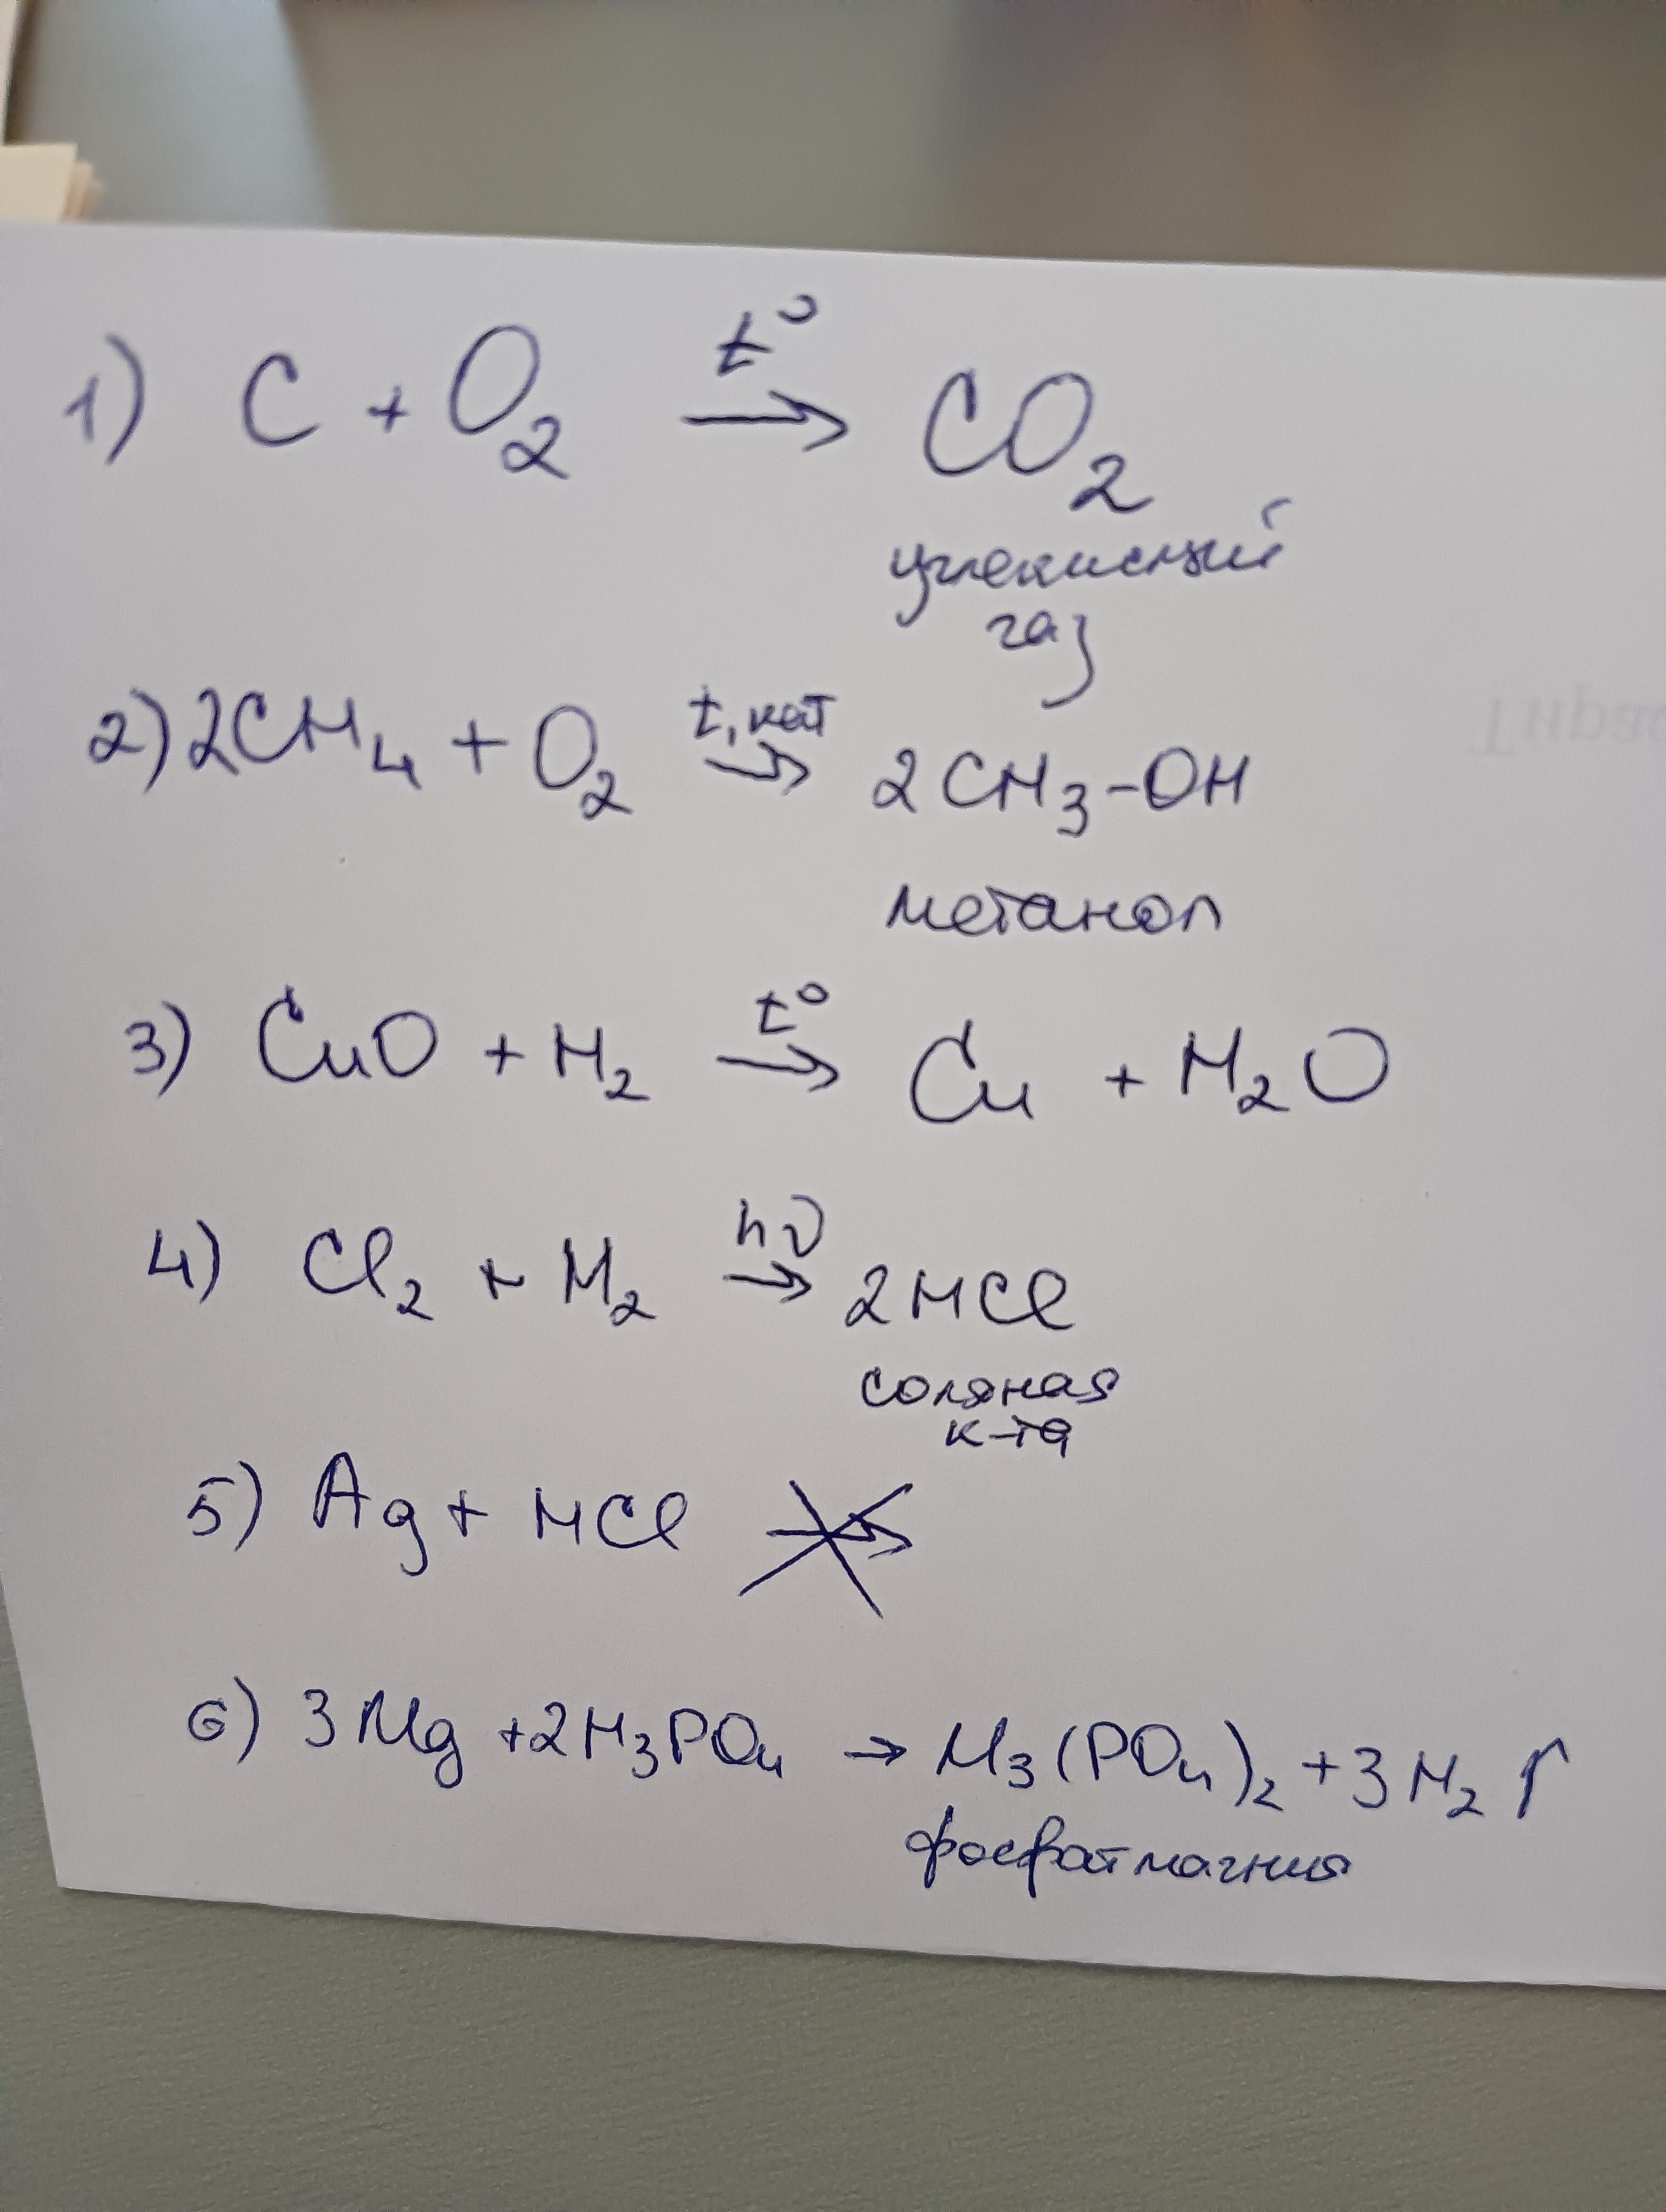 1) C + O₂ t° → CO₂
углекислый
газ
2) 2CH₄ + O₂ t, кат → 2CH₃-OH
метанол
3) CuO + H₂ t° → Cu + H₂O
4) Cl₂ + H₂ hν → 2HCl
соляная
к-та
5) Ag + HCl ↛
6) 3Mg + 2H₃PO₄ → M₃(PO₄)₂ + 3H₂ ↑
фосфат магния